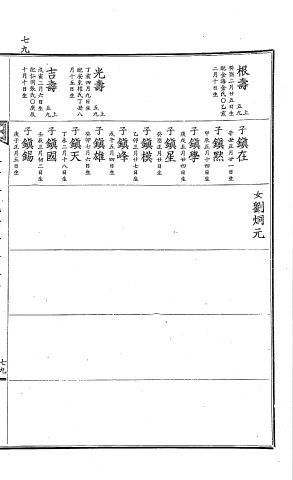 七九
根壽
上五九
癸酉二月廿五日生
配金海金氏〇乙亥
二月十日生
光壽
上五九
丁亥四月九日生
配安東權氏丁丑
月十五日生
吉壽
上五九
戊寅二月六日生
配仁同張氏〇庚辰
十月十日生
子鎭在
辛丑正月廿一日生
子鎭默
甲辰正月十四日生
子鎭學
庚戌五月廿四日生
子鎭星
癸丑正月廿日生
子鎭模
乙卯三月廿七日生
子鎭峰
戊午五月四日生
子鎭雄
癸卯七月八日生
子鎭天
丁未二月十八日生
子鎭國
壬辰三月初三日生
子鎭錫
庚子正月五日生
女劉炯元
七九